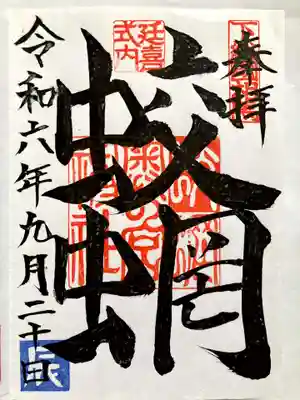 奉拝
延喜
式内
蛟蝄
令和六年九月二十日